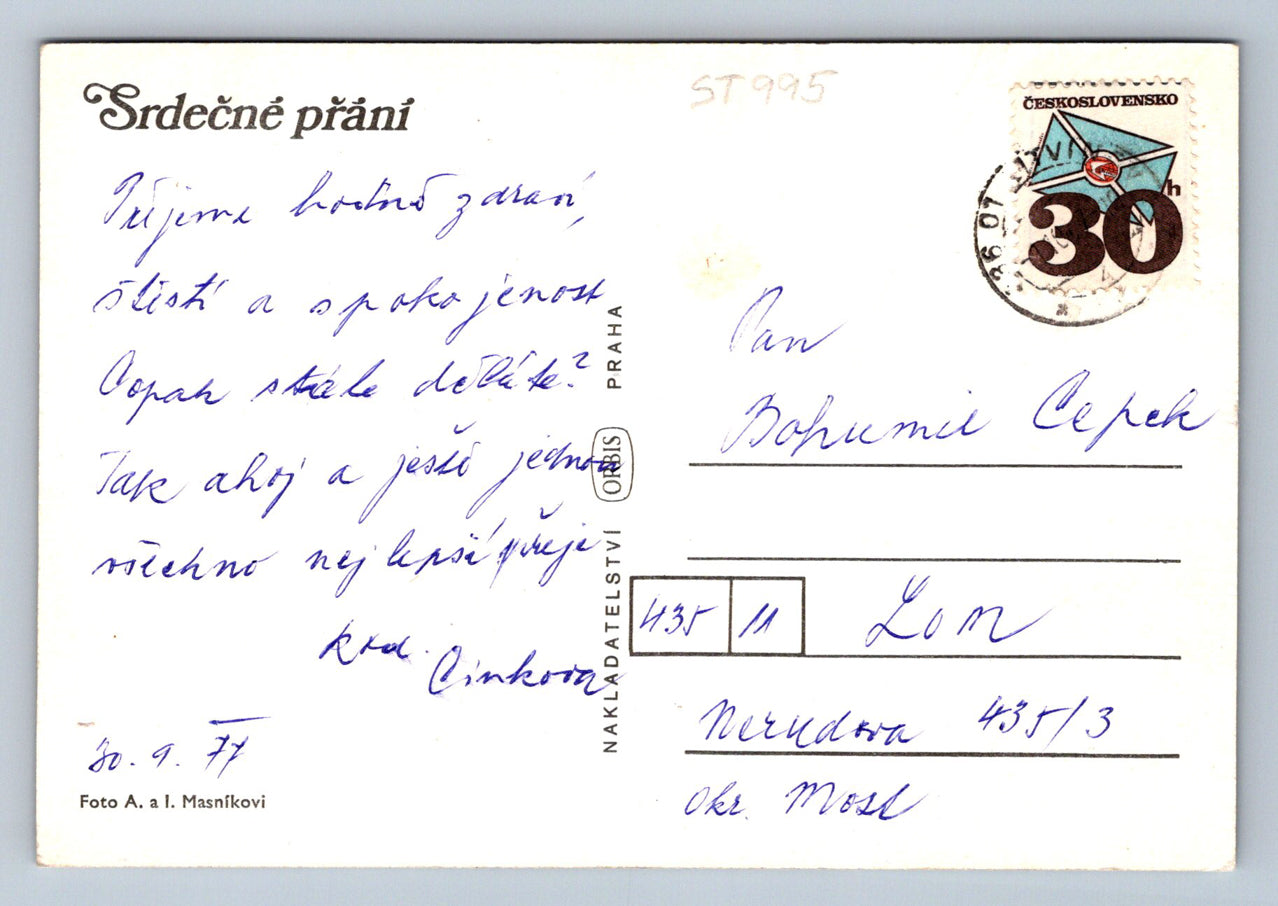 Srdečné přání
Přejeme hodně zdraví,
štěstí a spokojenost
Copak stále děláte?
Tak ahoj a ještě jednou
všechno nejlepší přeje
rod. Cinkova
30. 9. 77
Foto A. a I. Masníkovi
NAKLADATELSTVÍ ORBIS PRAHA
ST995
ČESKOSLOVENSKO
30 h
436 07
Pan
Bohumil Cepek
435 11 Lom
Nerudova 435/3
okr. Most